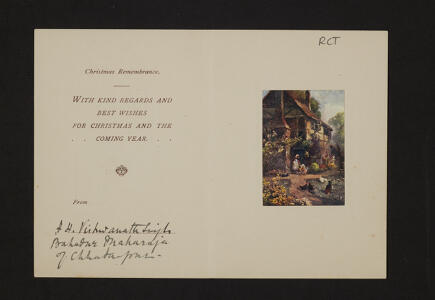 RCT
Christmas Remembrance.
WITH KIND REGARDS AND
BEST WISHES
FOR CHRISTMAS AND THE
. . COMING YEAR. . .
From
H. H. Vishwanath Singh
Bahadur Maharaja
of Chhatarpur.